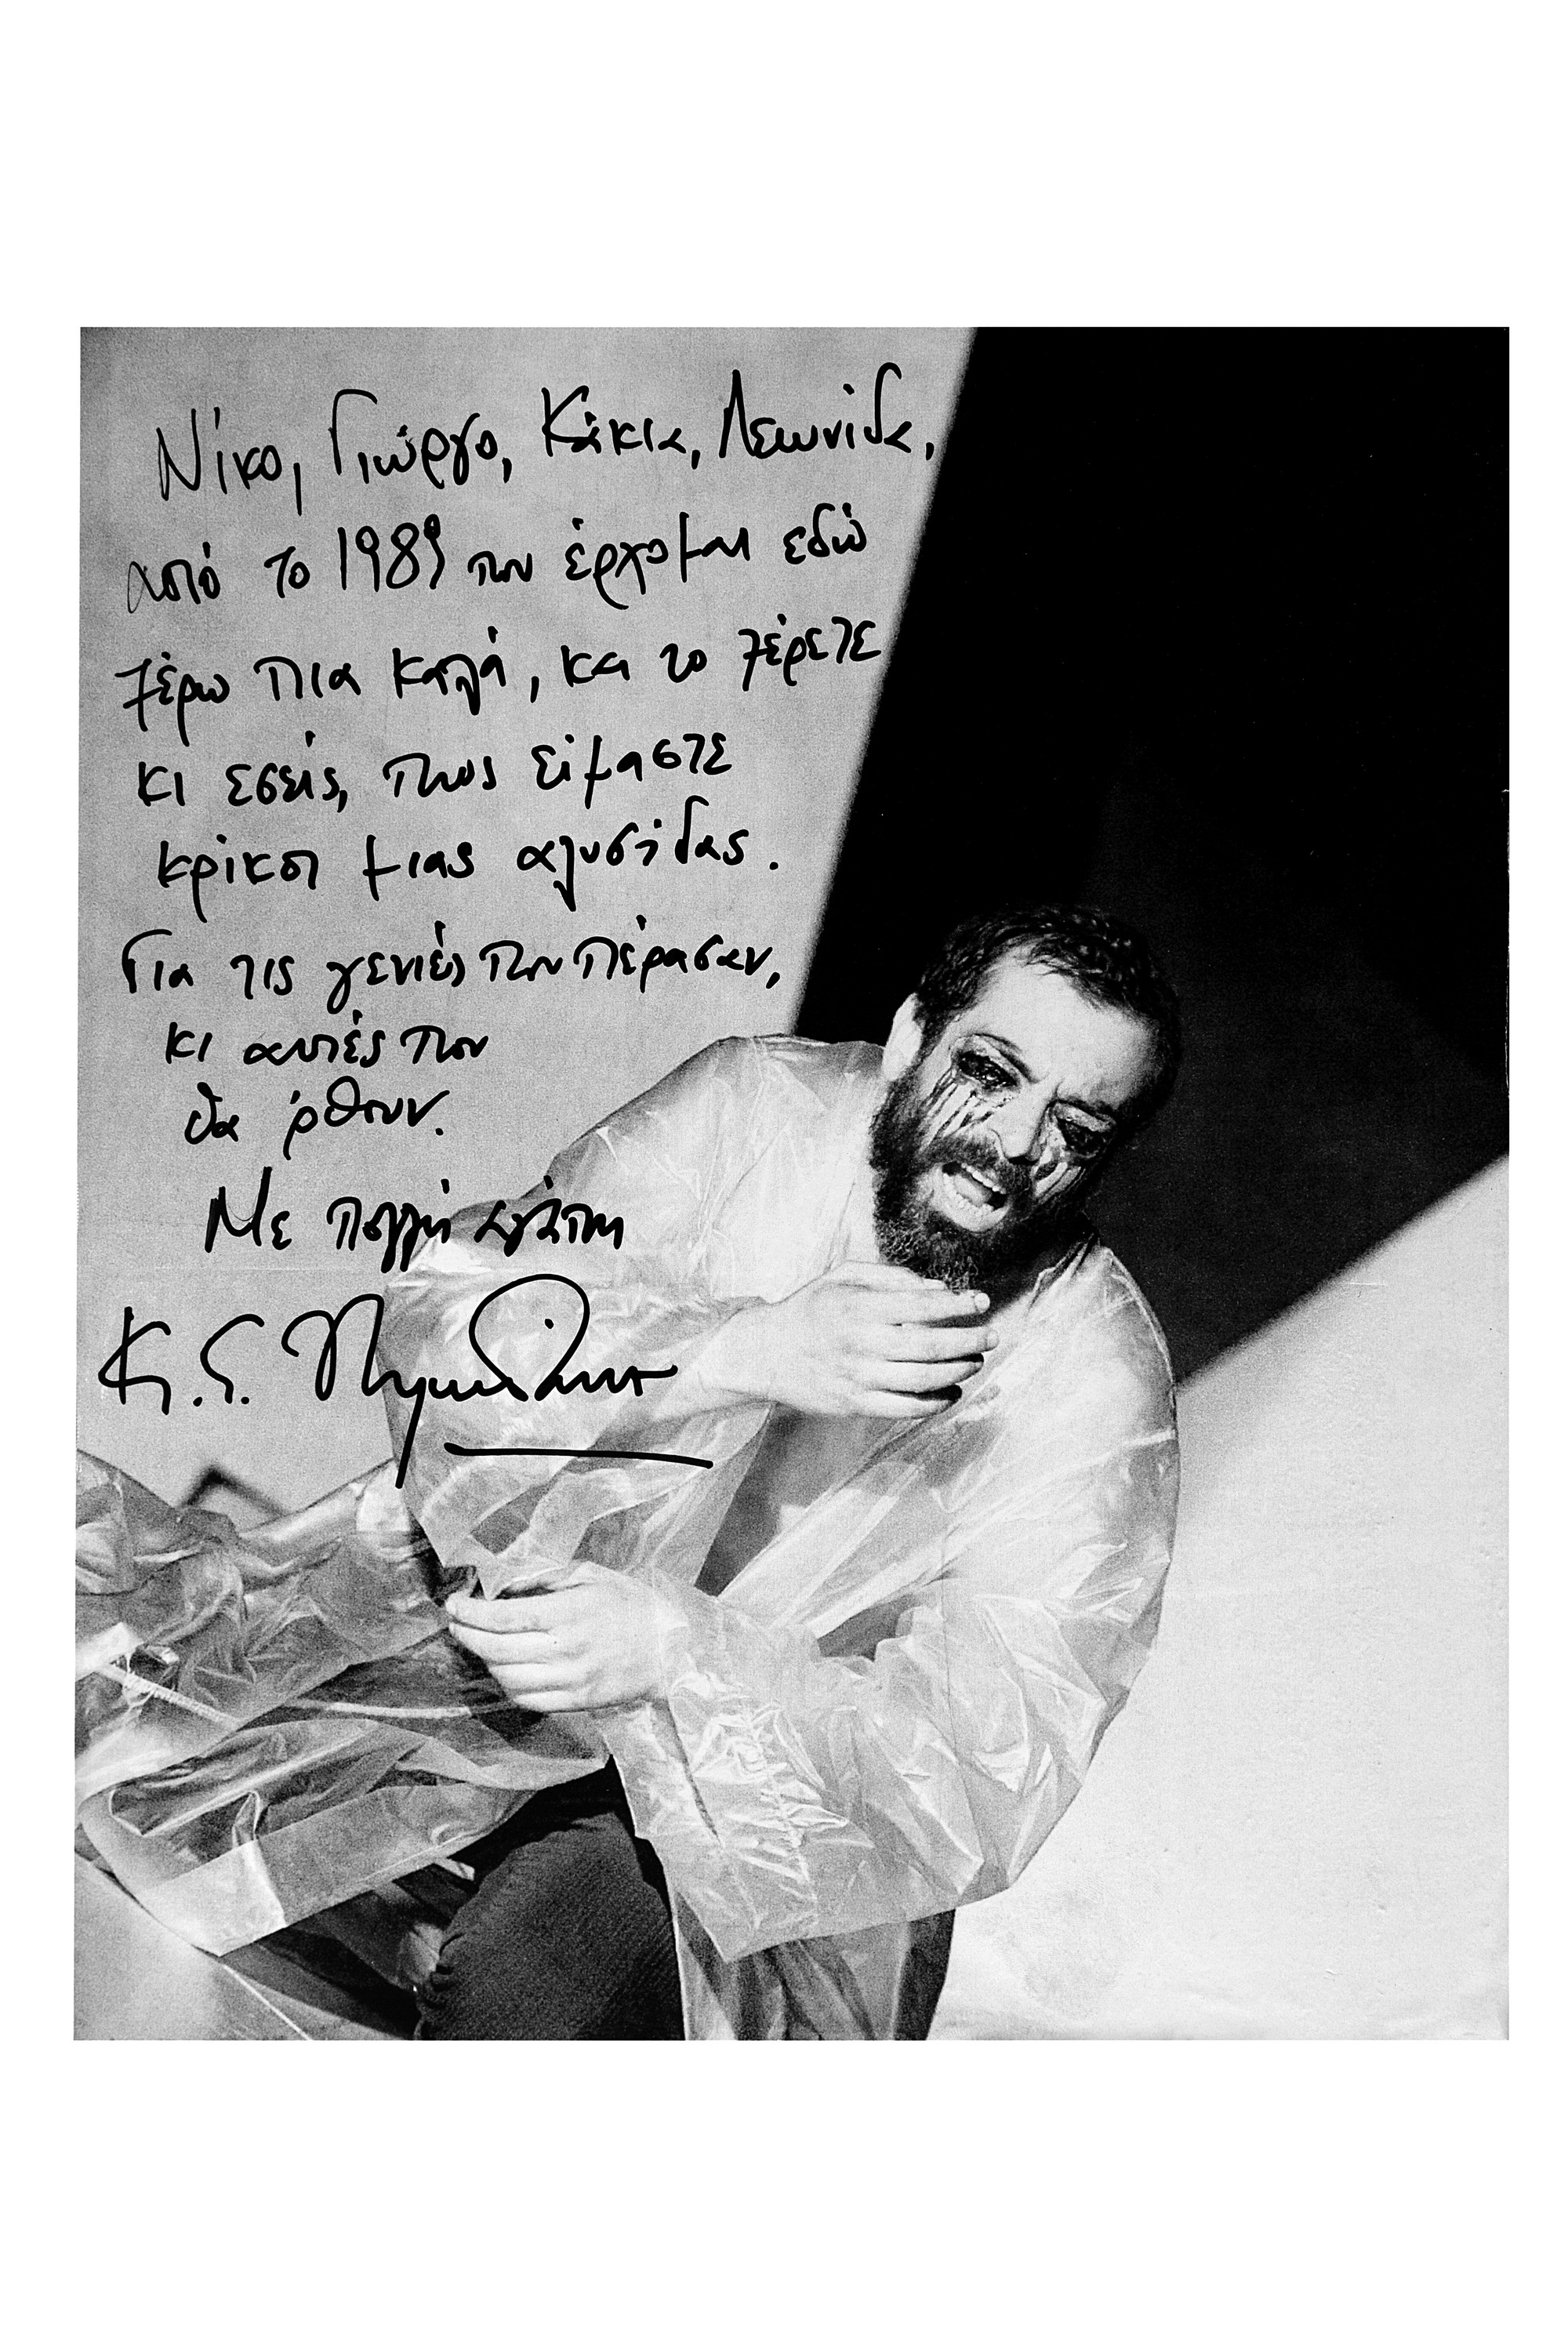 Νίκο, Γιώργο, Κάκια, Λεωνίδα,
από το 1989 που έρχομαι εδώ
ξέρω πια καλά, και το ξέρετε
κι εσείς, πως είμαστε
κρίκοι μιας αλυσίδας.
Για τις γενιές που πέρασαν,
κι αυτές που
θα 'ρθουν.
Με πολλή αγάπη
Κ.